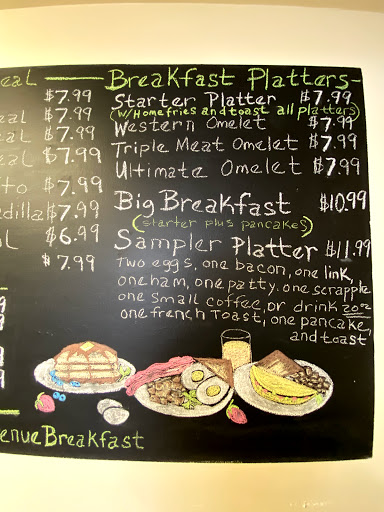 eal
$7.99
eal $7.99
eal $7.99
eal $7.99
to $7.99
dilla $7.99
$6.99
$7.99
Breakfast Platters
Starter Platter $7.99
(w/Homefries and toast all platters)
Western Omelet $7.99
Triple Meat Omelet $7.99
Ultimate Omelet $7.99
Big Breakfast $10.99
(starter plus pancakes)
Sampler Platter $11.99
Two eggs, one bacon, one link,
one ham, one patty, one scrapple
one small coffee or drink 20oz
one french Toast, one pancake,
and toast
enue Breakfast